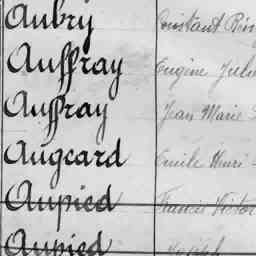 Aubry Constant
Auffray Eugène
Auffray Jean Marie
Augeard Emile Henri
Aupied Francis Victor
Aupied Joseph